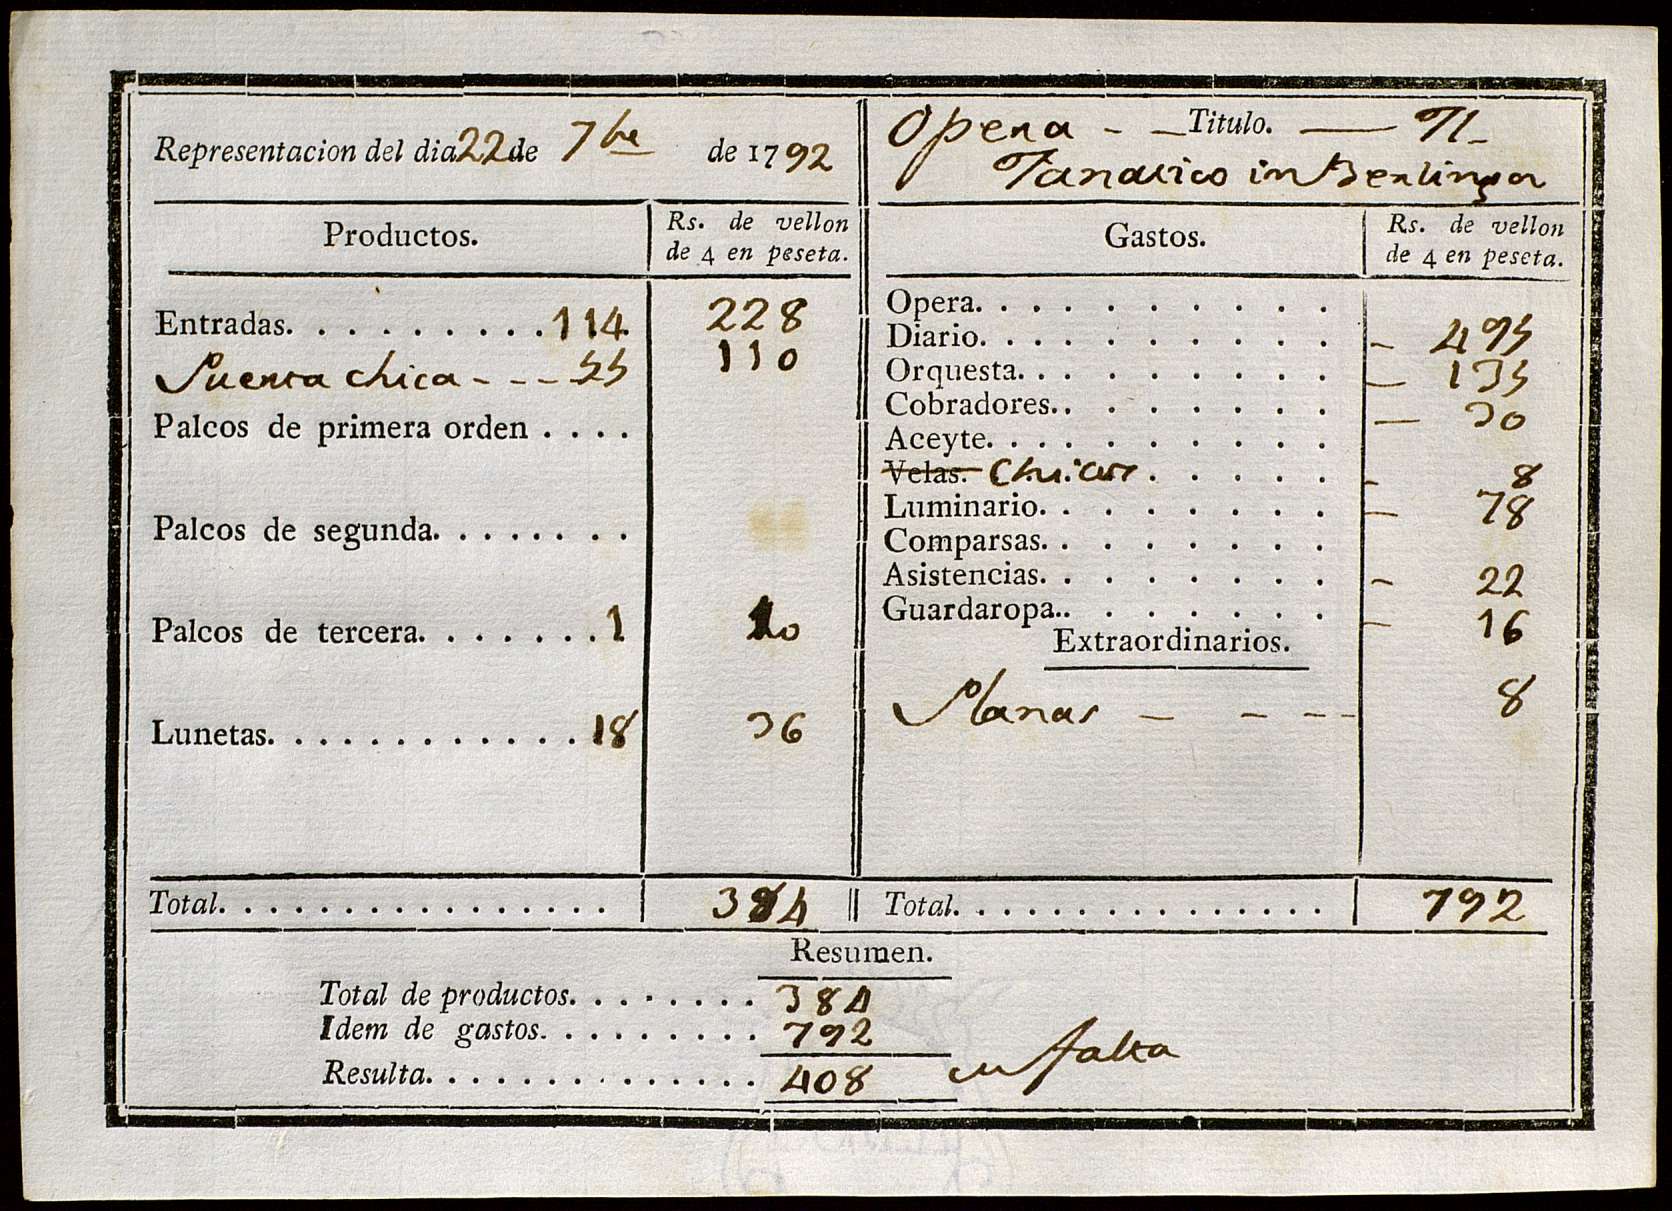 Representacion del dia 22 de 7bre de 1792
Productos.
Rs. de vellon
de 4 en peseta.
Entradas. . . . . . . . . . 114 228
Puerta chica - - - 55 110
Palcos de primera orden . . . .
Palcos de segunda. . . . . . . .
Palcos de tercera. . . . . . . 1 10
Lunetas. . . . . . . . . . . . . 18 36
Total. . . . . . . . . . . . . . . . 384
Opera - - Titulo. — Il
Fanatico in Berlinza
Gastos.
Rs. de vellon
de 4 en peseta.
Opera. . . . . . . . . . .
Diario. . . . . . . . . . . - 495
Orquesta. . . . . . . . . - 135
Cobradores.. . . . . . . - 30
Aceyte. . . . . . . . . . .
Velas. . . . . . - 8
Luminario. . . . . . . . - 78
Comparsas. . . . . . . .
Asistencias. . . . . . . . - 22
Guardaropa.. . . . . . . - 16
Extraordinarios.
Planas - - - - 8
Total. . . . . . . . . . . . . . . 792
Resumen.
Total de productos. . . . . . . . 384
Idem de gastos. . . . . . . . . 792
Resulta. . . . . . . . . . . . . . 408 en falta